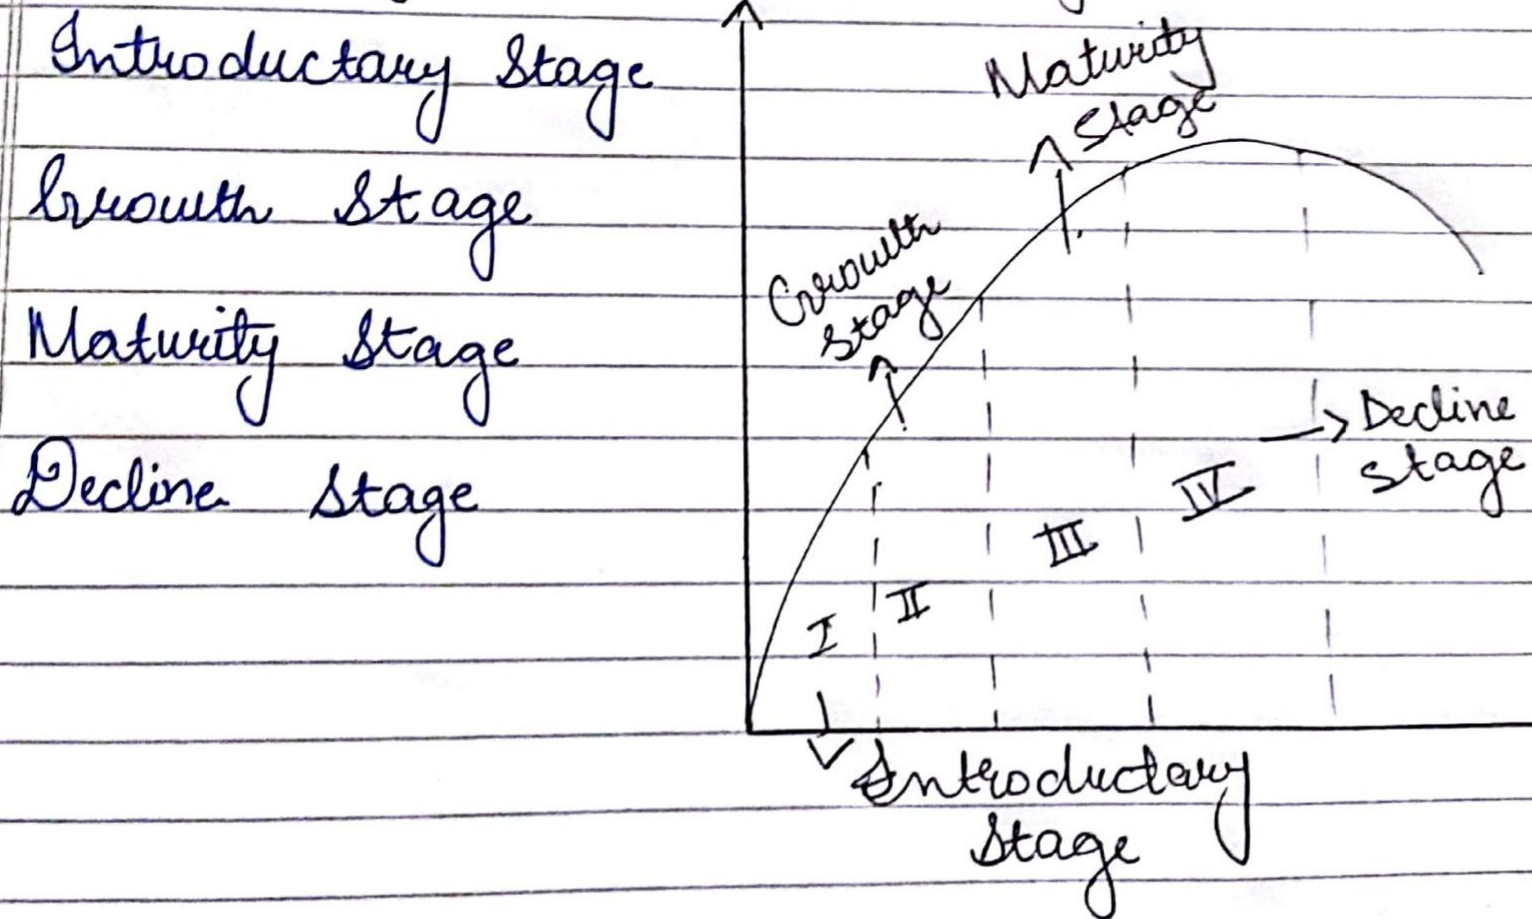 Introductary Stage
Growth Stage
Maturity Stage
Decline Stage
Maturity
Stage
Growth
Stage
Decline
Stage
IV
III
II
I
Introductary
Stage